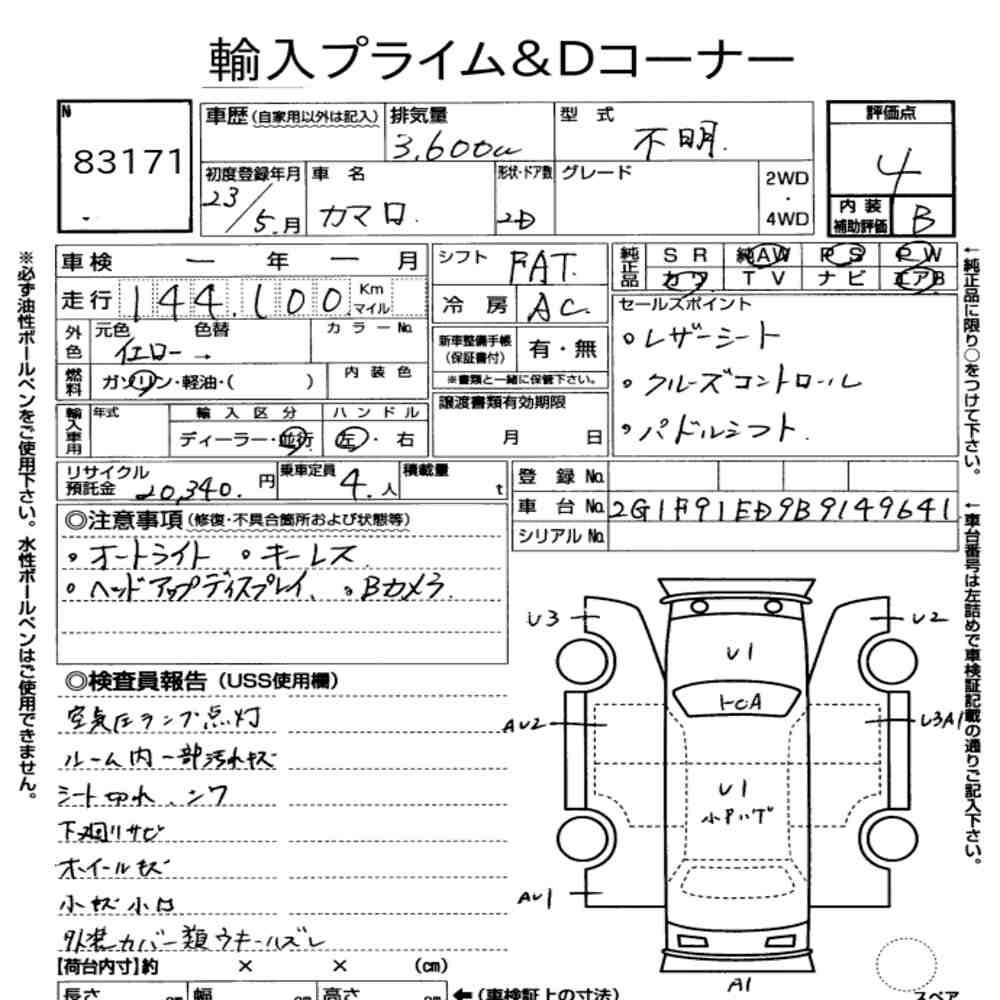 輸入プライム&Dコーナー
№
83171
車歴(自家用以外は記入)
排気量
3,600cc
型 式
不明.
評価点
4
初度登録年月
23/5.月
車 名
カマロ.
形状・ドア数
2D
グレード
2WD
・
4WD
内 装
補助評価
B
車検 ー 年 ー 月
シフト
FAT.
純正品
S R
純AW
P S
P W
カワ
T V
ナビ
エアB
走行 144,100
Km
マイル
冷 房
AC.
セールスポイント
。レザーシート
。クルーズコントロール
。パドルシフト.
外色
元色
イエロー→
色替
カラーNo.
新車整備手帳
(保証書付)
有・無
※書類と一緒に保管下さい。
燃料
ガソリン・軽油・( )
内 装 色
輸入車用
年式
輸 入 区 分
ディーラー・並行
ハ ン ド ル
左・右
譲渡書類有効期限
月 日
リサイクル
預託金 20,340.円
乗車定員 4.人
積載量 t
登 録 No.
車 台 No. 2G1F91ED9B9149641
シリアル No.
◎注意事項(修復・不具合箇所および状態等)
。オートライト 。キーレス
。ヘッドアップディスプレイ、 。Bカメラ.
◎検査員報告(USS使用欄)
空気圧ランプ点灯
ルーム内一部汚れキズ
シート切れ、シワ
下廻りサビ
ホイールキズ
小キズ小凹
外装カバー類ウキ・ハズレ
【荷台内寸】約 × × (cm)
長さ cm 幅 cm 高さ cm
←(車検証上の寸法)
U3
U2
U1
トcA
AU2
U3A1
U1
AU1
A1
スペア
※必ず油性ボールペンをご使用下さい。水性ボールペンはご使用できません。
←純正品に限り○をつけて下さい。
←車台番号は左詰めで車検証記載の通りご記入下さい。